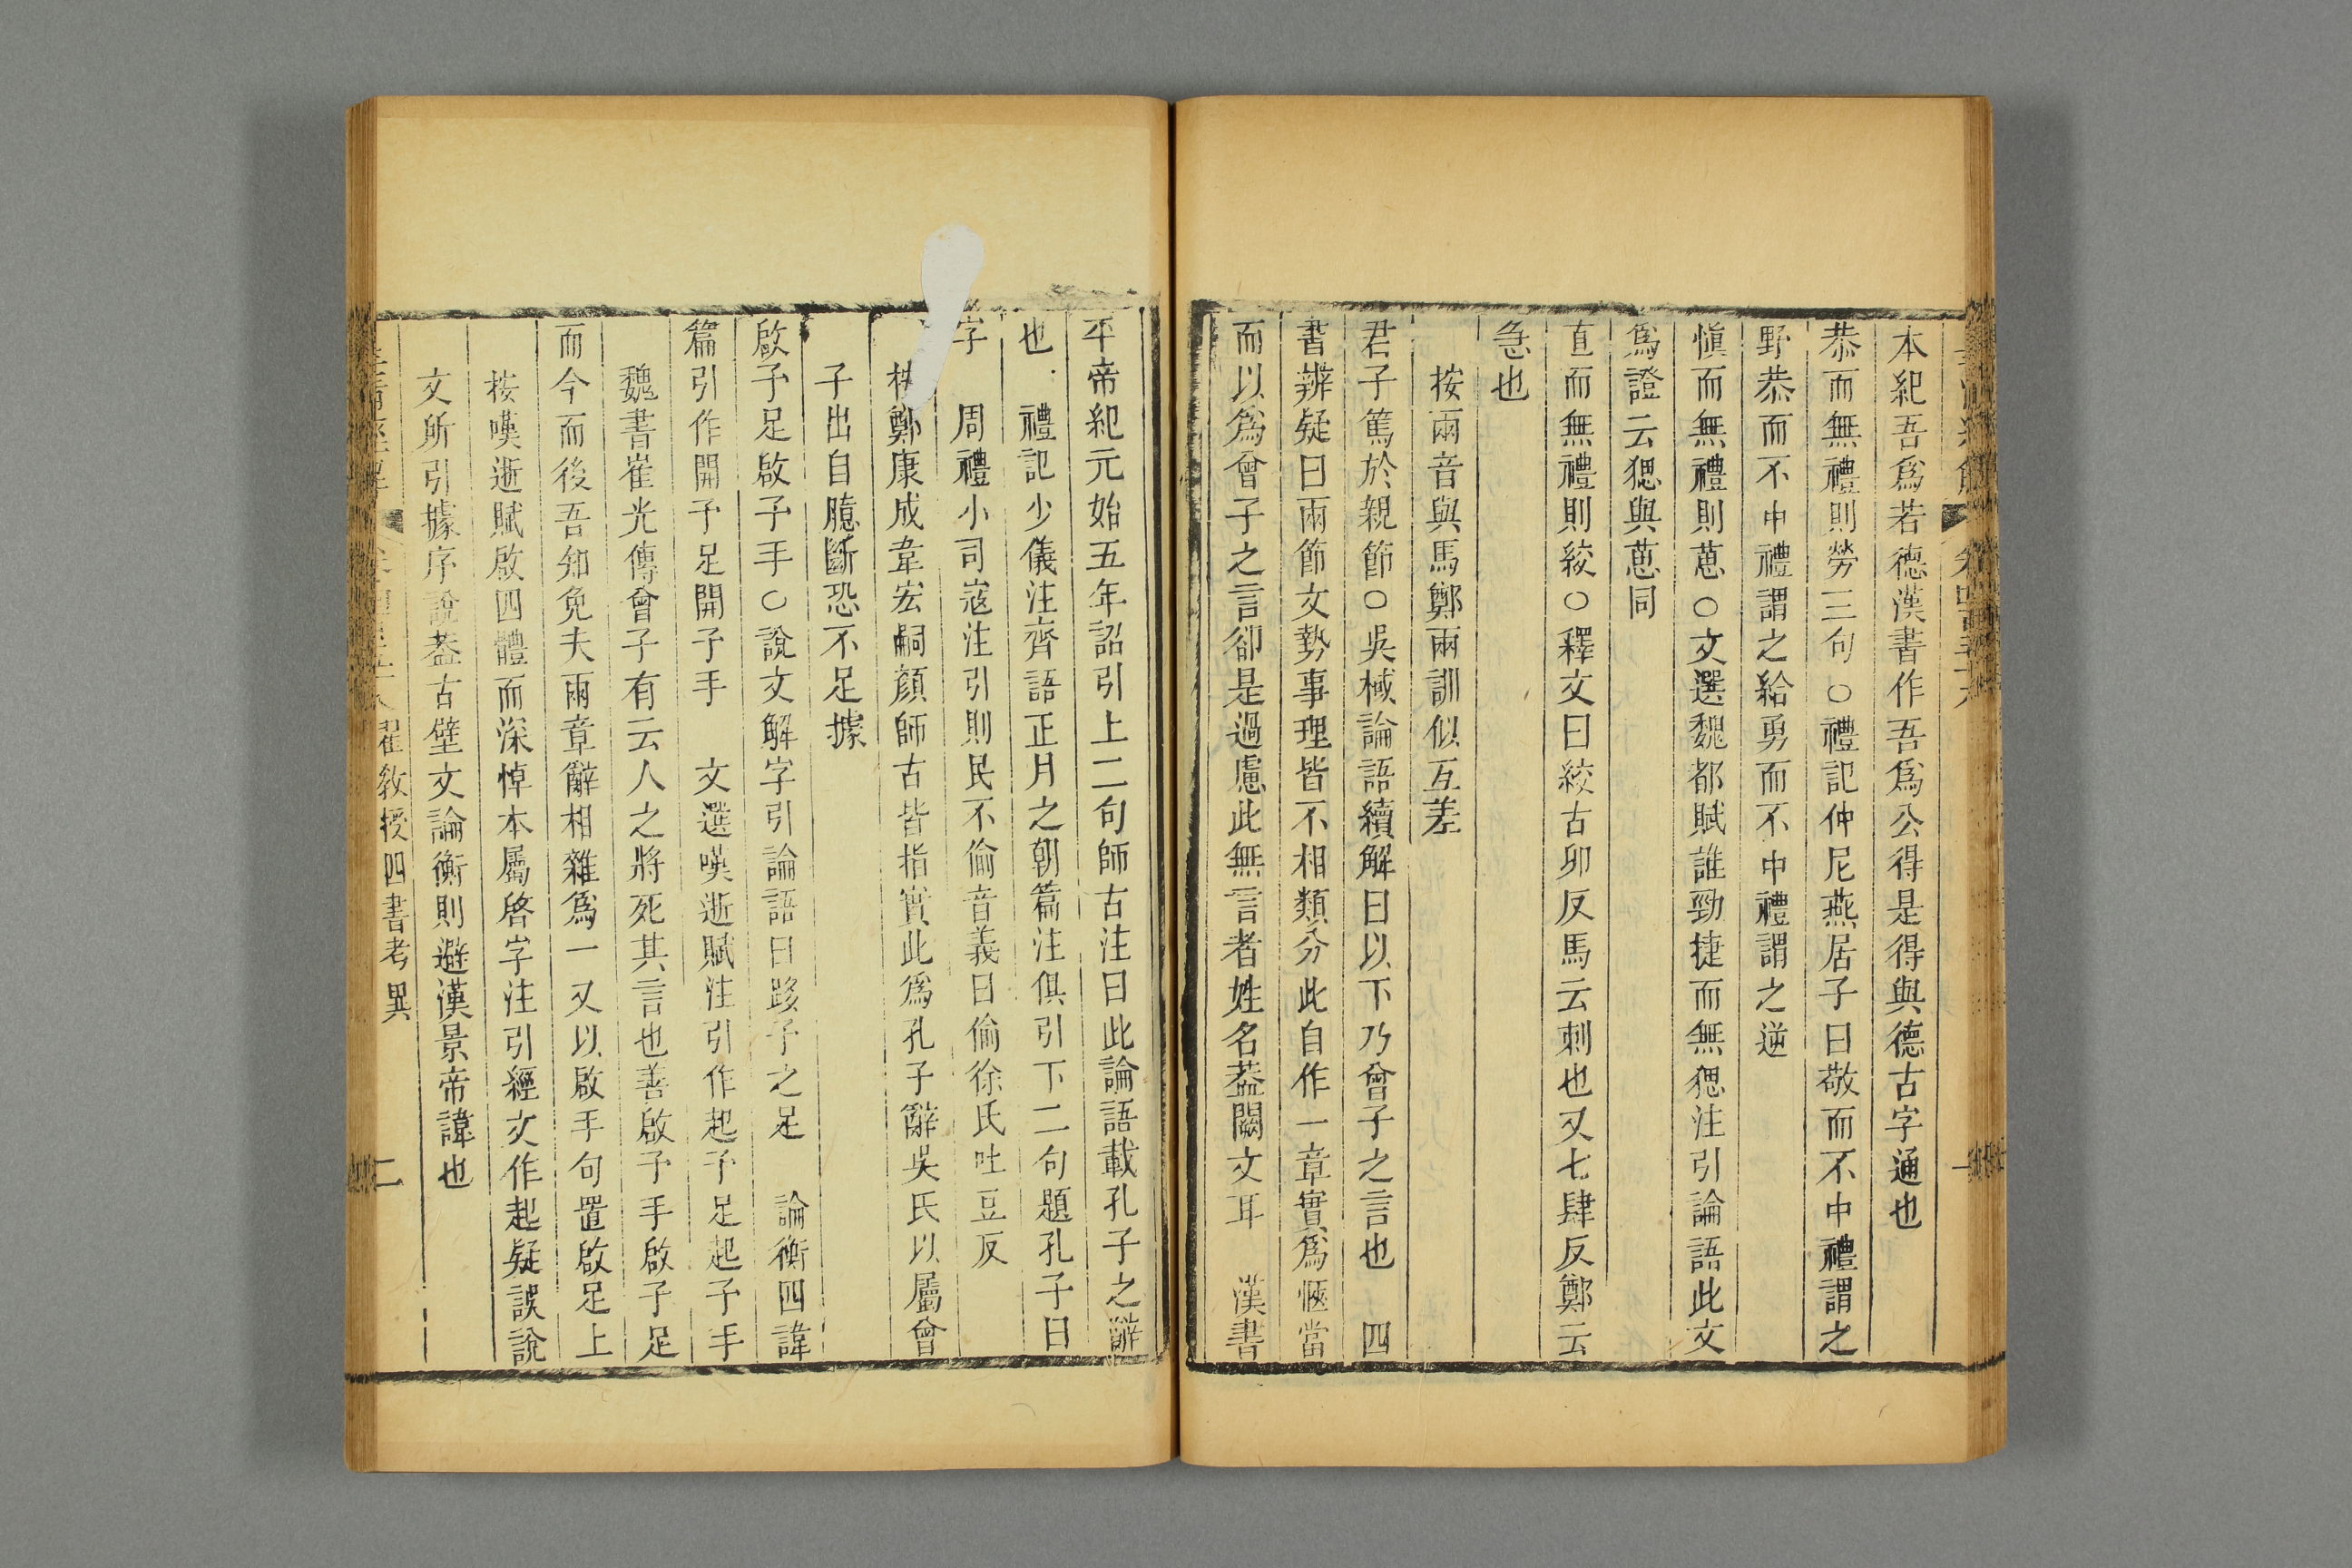 本紀吾爲若德漢書作吾爲公得是得與德古字通也
恭而無禮則勞三句○禮記仲尼燕居子曰敬而不中禮謂之
野恭而不中禮謂之給勇而不中禮謂之逆
愼而無禮則葸○文選魏都賦誰勁捷而無猤注引論語此文
爲證云猤與葸同
直而無禮則絞○釋文曰絞古卯反馬云刺也又七肆反鄭云
急也
按兩音與馬鄭兩訓似互差
君子篤於親節○吳棫論語續解曰以下乃曾子之言也 四
書辨疑曰兩節文勢事理皆不相類分此自作一章實爲愜當
而以爲曾子之言卻是過慮此無言者姓名葢闕文耳 漢書
平帝紀元始五年詔引上二句師古注曰此論語載孔子之辭
也 禮記少儀注齊語正月之朝篇注俱引下二句題孔子曰
字 周禮小司寇注引則民不偷音義曰偷徐氏吐豆反
鄭康成韋宏嗣顏師古皆指實此爲孔子辭吳氏以屬曾
子出自臆斷恐不足據
啟予足啟予手○說文解字引論語曰跢予之足 論衡四諱
篇引作開予足開予手 文選嘆逝賦注引作起予足起予手
魏書崔光傳曾子有云人之將死其言也善啟予手啟予足
而今而後吾知免夫兩章辭相雜爲一又以啟手句置啟足上
按嘆逝賦啟四體而深悼本屬啓字注引經文作起疑誤說
文所引據序說葢古壁文論衡則避漢景帝諱也
翟教授四書考異
二